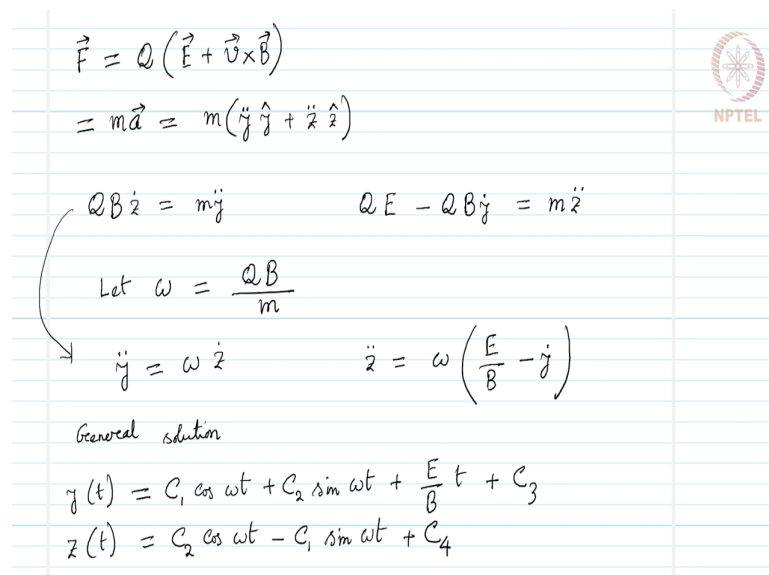 F⃗ = Q(E⃗ + v⃗×B⃗)
NPTEL
= ma⃗ = m(ÿ ŷ + z̈ ẑ)
QBż = mÿ QE − QBẏ = mz̈
Let ω = QB/m
ÿ = ω ż z̈ = ω(E/B − ẏ)
General solution
y(t) = C₁ cos ωt + C₂ sin ωt + E/B t + C₃
z(t) = C₂ cos ωt − C₁ sin ωt + C₄